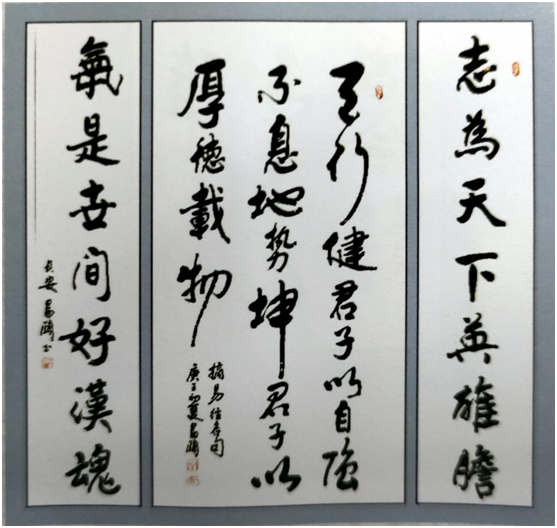 志為天下英雄膽
天行健君子以自強
不息地势坤君子以
厚德載物
摘易经名句
庚子初夏
氣是世间好漢魂
長安